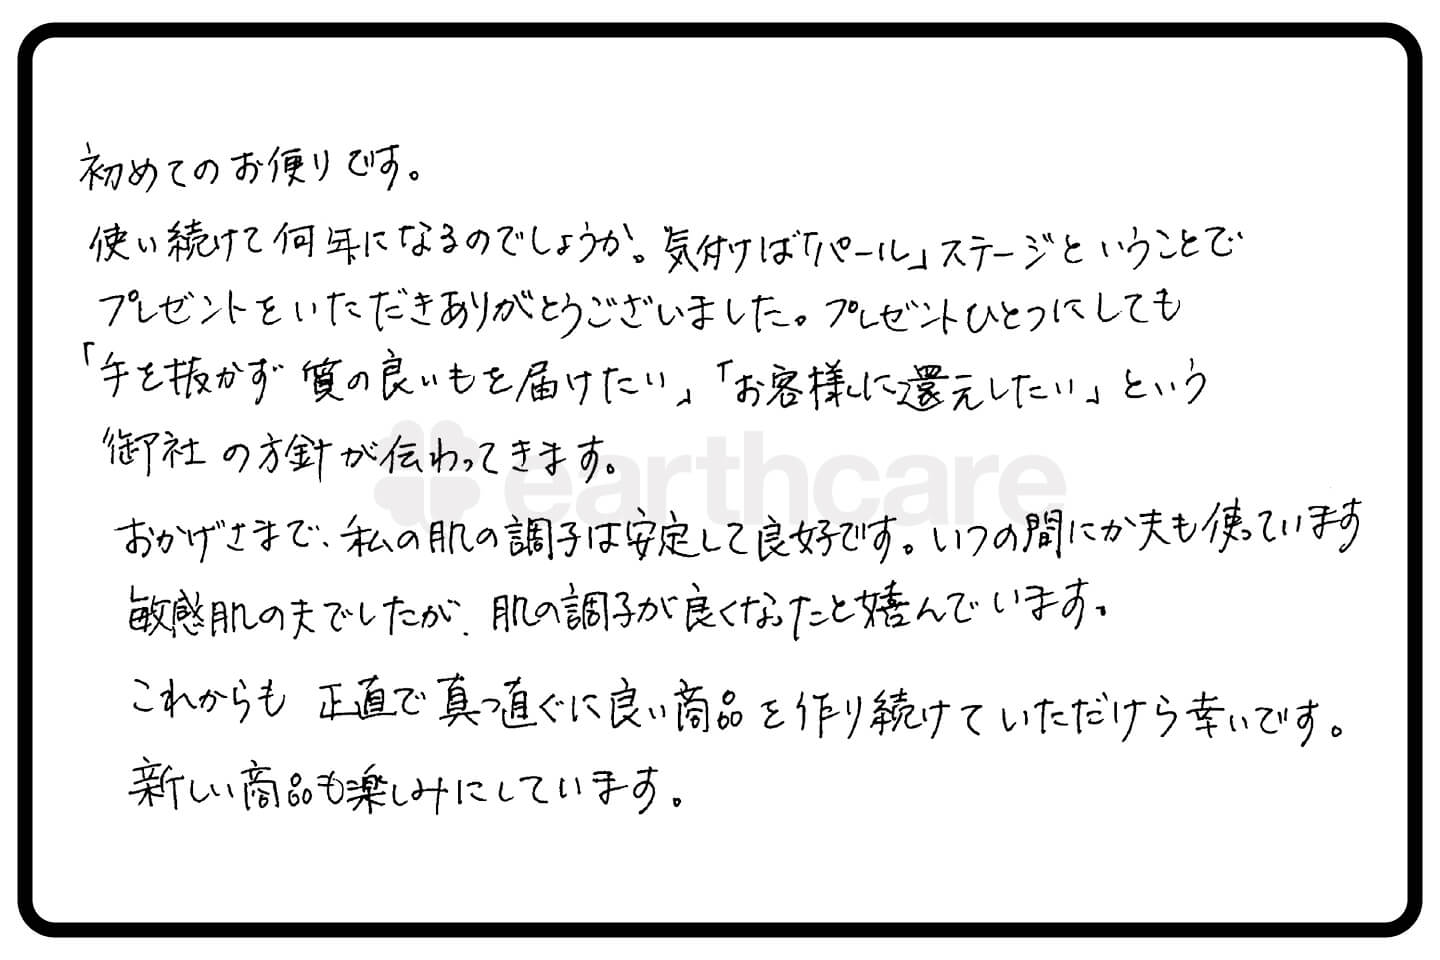 初めてのお便りです。
使い続けて何年になるのでしょうか。気付けば「パール」ステージということで
プレゼントをいただきありがとうございました。プレゼントひとつにしても
「手を抜かず質の良いもを届けたい」「お客様に還元したい」という
御社の方針が伝わってきます。
earthcare
おかげさまで、私の肌の調子は安定して良好です。いつの間にか夫も使っています
敏感肌の夫でしたが、肌の調子が良くなったと嬉んでいます。
これからも 正直で真っ直ぐに良い商品を作り続けていただけら幸いです。
新しい商品も楽しみにしています。